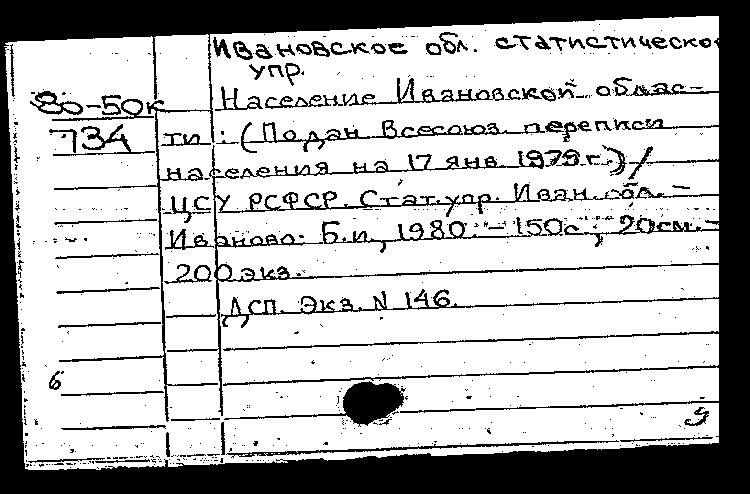 Ивановское обл. статистическо
упр.
80-50к Население Ивановской облас-
734 ти : (По дан Всесоюз. переписи
населения на 17 янв 1979г.) /
ЦСУ РСФСР. Стат. упр. Иван. обл. -
Иваново: Б.и, 1980. - 150с ; 20см. -
200 экз.
ДСП. Экз. N 146.
6